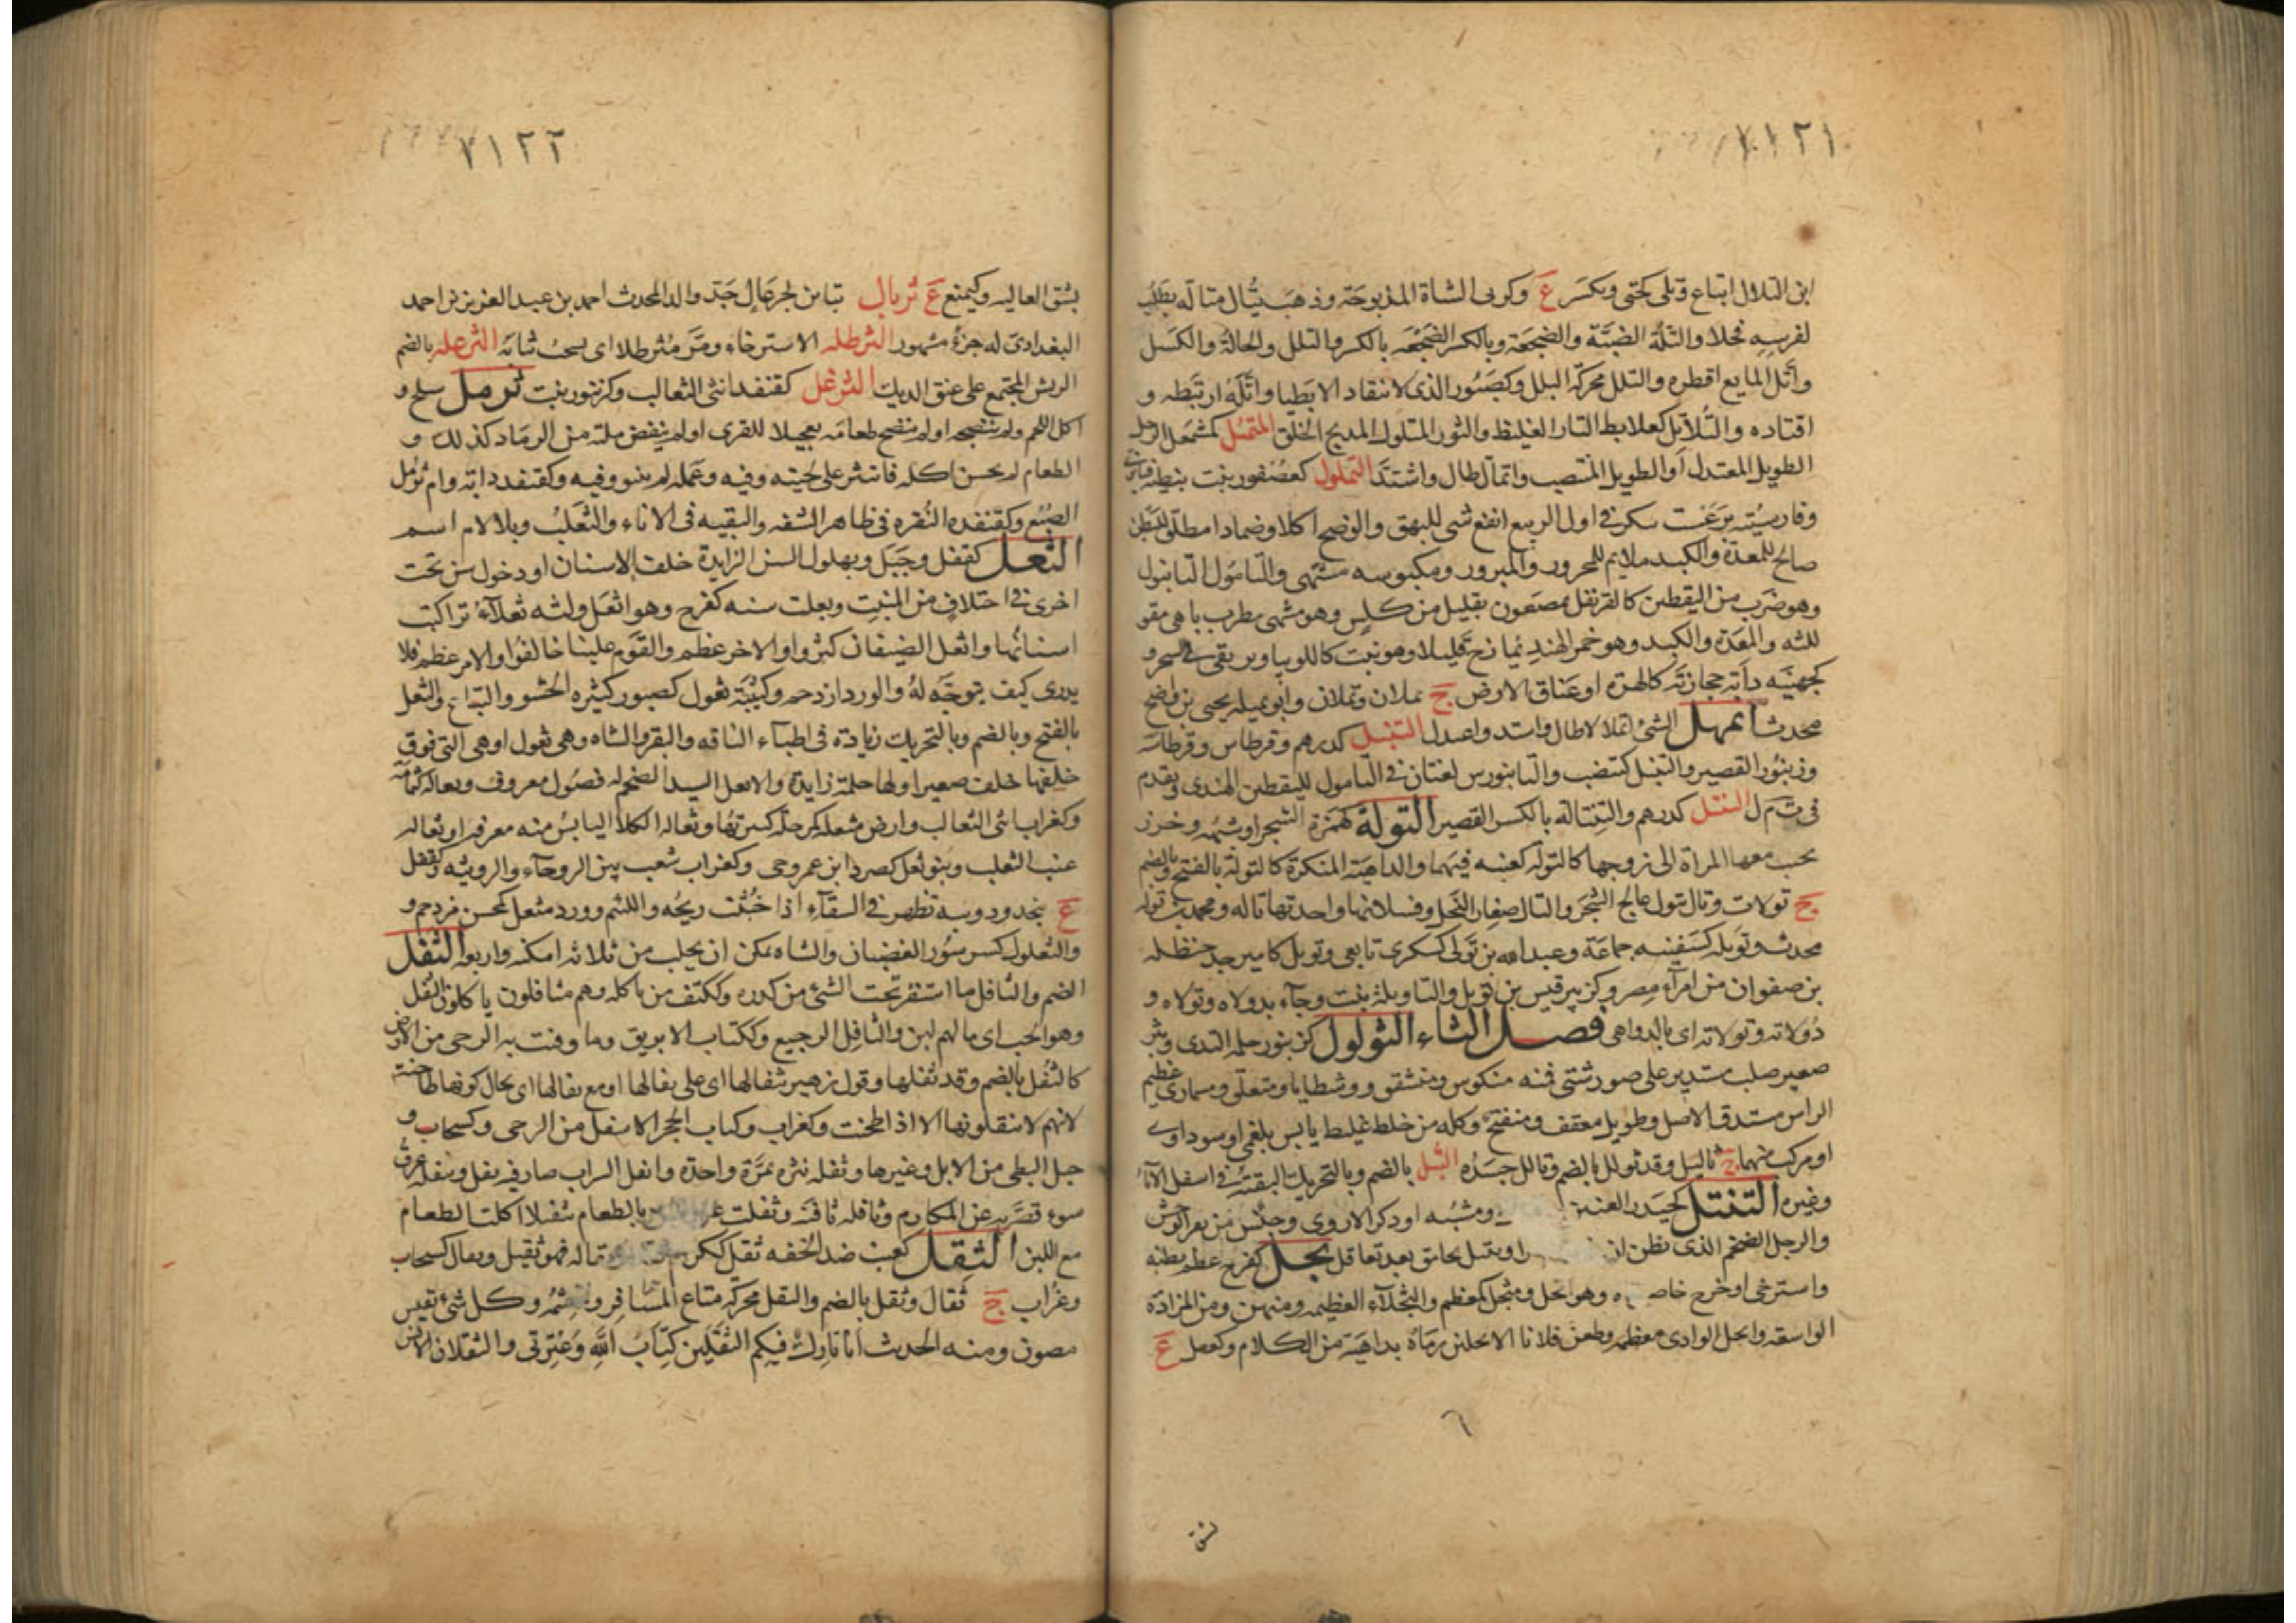 ١١٢١
ابن التلال اتباع وتلى كحتى وبكسر ع وكربى الشاة المذبوحة وذهب يتال متالة يطلب
لفرسه فحلا والتلة الضبة والضجعة وبالكسر الضجعه بالكسر والتلل والحالة والكسل
وأتل المايع اقطره والتلل محركة البلل وكصبور الذى لا ينقاد الا بطيا واتله ارتبطه و
اقتاده والتلاتل كعلابط التار الغليظ والثور المتلول المدمج الخلق المتمئل كمشمعل الرجل
الطويل المعتدل أو الطويل المنتصب واتمال طال واشتد التملول كعصفور بنت
وفارسيته برغست سكر فى اول الربيع انفع شى للبهق والوضح اكلا وضمادا مطلق للبطن
صالح للمعدة والكبد ملايم للمحرور والمبرور ومكبوسه مشتهى والتامول التابنول
وهو ضرب من اليقطين كالقرنفل يمضغون بقليل من كلس وهو مشهى مطرب باهى مقو
للثه والمعدة والكبد وهو خمر الهند يمازج قليلا وهو نبت كاللوبيا ويرتقى فى الشجر و
كجهينه دابة حجازية كالهرة او عناق الارض ج تملان وتملات وابو تميله يحيى بن واضح
محدث اتمهل الشئ اتمهلالا طال واشتد واعتدل التنبل كدرهم وقرطاس وقرطاسة
وزنبور القصير والتنبل كتنضب والتانبول لغتان فى التامول لليقطين الهندى وتقدم
فى ت م ل التنتل كدرهم والتنتالة بالكسر القصير التولة كهمزة السحر او شبهه وخرز
تحبب معها المراة الى زوجها كالتوله كعنبه فيهما والداهية المنكرة كالتولة بالفتح وبالضم
ج تولات وتال يتول عالج السحر والتال صغار النخل وفسلانها واحدتها تاله ومحمد بن توله
محدث وتويله كسفينه جماعة وعبدالله بن تولى كسكرى تابعى وتوبل كامير جد حنظله
بن صفوان من امرآء مصر وكزبير قيس بن تويل والتاويلة نبت وجآء بدولاه وتولاه و
دولاته وتولاته اى بالدواهى فصل الثاء الثولول كزنبور حلمه الثدى وبثر
صغير صلب مستدير على صور شتى فمنه منكوس ومتشقق ذو شظايا ومتعلق ومسمارى عظيم
الراس مستدق الاصل وطويل معقف ومنفتح وكله من خلط غليظ يابس بلغمى او سوداوى
او مركب منهما ج ثاليل وقد ثولل بالضم وتثالل جسده الثبل بالضم وبالتحريك البقية فى اسفل الانآ
وغيره التنتل كحيدر العنين ومشبه او ذكر الاروى وجنس من بقر الوحش
والرجل الضخم الذى يظن ان وتثيتل تحامق بعد تعاقل ثجل كفرح عظم بطنه
واسترخى او خرج خاصر وهو اثجل ومثجل كمعظم والثجلآء العظيمه ومنهن ومن المزادة
الواسعة واثجل الوادى معظمه وطعن فلانا الاثجلين رماه بداهية من الكلام وكفعل ع
٦
بشق
١١٢٢
بشق العاليه وكيمنع ع ثربال ثبا بن لجرعال جد والد المحدث احمد بن عبد العزيز بن احمد
البغدادى له جزء مشهور الثرطله الاسترخاء ومر مثرطلا اى يسحب ثيابه الثرعله بالضم
الريش المجتمع على عنق الديك الثرغل كقنفد انثى الثعالب وكزنبور بنت ثرمل سلح و
اكل اللحم ولم ينضجه او لم ينضج طعامه تعجيلا للقرى او لم ينفض ملته من الرماد كذلك و
الطعام لم يحسن اكله فانتثر على لحيته وفيه وعمله لم يتنوق فيه وكقنفد دابة وام ثرمل
الضبع وكقنفده النقره فى ظاهر الشفه والبقيه فى الاناء والثعلب وبلا لام اسم
الثعل كقفل وجبل وبهلول السن الزايدة خلف الاسنان او دخول سن تحت
اخرى فى اختلاف من المنبت وثعلت سنه كفرح وهو اثعل ولثه ثعلآء تراكبت
اسنانها واثعل الضيفان كثروا والاخر عظم والقوم علينا خالفوا والامر عظم فلا
يدرى كيف يتوجه له والورد ازدحم وكتيبة ثعول كصبور كثيره الحشو والتباع والثعل
بالفتح وبالضم وبالتحريك زيادة فى اطبآء الناقه والبقر والشاه وهى ثعول او هى التى فوق
خلفها خلف صغير او لها حلمة زايدة والاثعل السيد الضخم له فضول معروف وثعالة كثمامة
وكغراب انثى الثعالب وارض مثعله كمرحلة كثيرتها وثعاله الكلأ اليابس منه معرفه او ثعاله
عنب الثعلب وبنو ثعل كصرد ابن عمرو حى وكغراب شعب بين الروحآء والرويثه وكقفل
ع بنجد ودويبه تظهر فى السقآء اذا خبثت ريحه واللئيم وورد مثعل كمحسن مزدحم و
والثعلول كسرسور الغضبان والشاه يمكن ان يحلب من ثلاثه امكنه واربعه الثفل
الضم والثافل ما استقر تحت الشئ من كدره وككتف من ياكله وهم مثافلون ياكلون الثفل
وهو الحب اى مالهم لبن والثافل الرجيع وككتاب الابريق وما وقيت به الرحى من الارض
كالثفل بالضم وقد ثفلها وقول زهير بثفالها اى على ثفالها او مع ثفالها اى بحال كونها طاحنة
لانهم لا يثفلونها الا اذا طحنت وكغراب وكتاب الحجر الاسفل من الرحى وكسحاب و
جبل البطى من الابل وغيرها وثفله نثره بمرة واحدة واثفل الشراب صار فيه ثفل وتثفله عرق
سوء قصر به عن المكارم وثافله ثافنه وثفلت بالطعام تثفيلا اكلت الطعام
مع اللبن الثقل كعنب ضد الخفه ثقل ككرم وثقاله فهو ثقيل وثقال كسحاب
وغراب ج ثقال وثقل بالضم والثقل محركة متاع المسافر وحشمه وكل شئ نفيس
مصون ومنه الحديث انا تارك فيكم الثقلين كتاب الله وعترتى والثقلان الانس